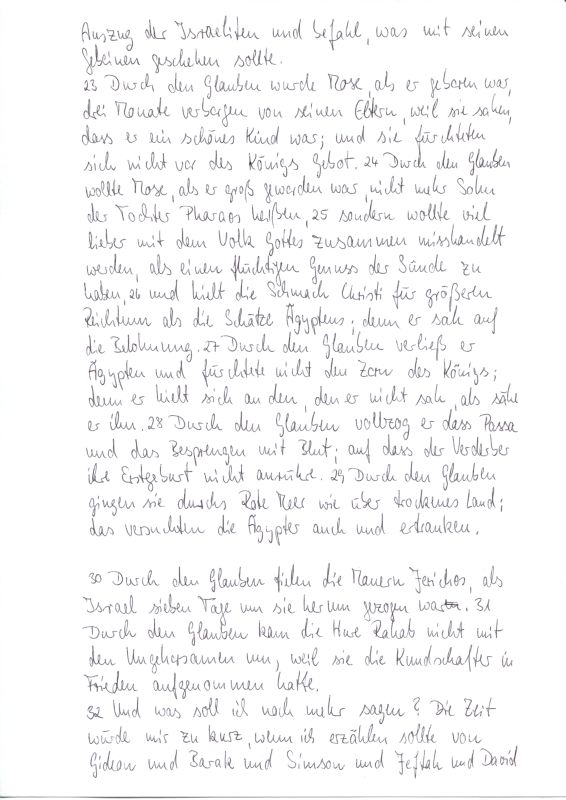 Auszug der Israeliten und befahl, was mit seinen
Gebeinen geschehen sollte.
23 Durch den Glauben wurde Mose, als er geboren war,
drei Monate verborgen von seinen Eltern, weil sie sahen,
dass er ein schönes Kind war; und sie fürchteten
sich nicht vor des Königs Gebot. 24 Durch den Glauben
wollte Mose, als er groß geworden war, nicht mehr Sohn
der Tochter Pharaos heißen, 25 sondern wollte viel
lieber mit dem Volk Gottes zusammen misshandelt
werden, als einen flüchtigen Genuss der Sünde zu
haben, 26 und hielt die Schmach Christi für größeren
Reichtum als die Schätze Ägyptens; denn er sah auf
die Belohnung. 27 Durch den Glauben verließ er
Ägypten und fürchtete nicht den Zorn des Königs;
denn er hielt sich an den, den er nicht sah, als sähe
er ihn. 28 Durch den Glauben vollzog er dass Passa
und das Besprengen mit Blut; auf dass der Verderber
ihre Erstgeburt nicht anrühre. 29 Durch den Glauben
gingen sie durchs Rote Meer wie über trockenes Land;
das versuchten die Ägypter auch und ertranken.
30 Durch den Glauben fielen die Mauern Jerichos, als
Israel sieben Tage um sie herum gezogen war. 31
Durch den Glauben kam die Hure Rahab nicht mit
den Ungehorsamen um, weil sie die Kundschafter in
Frieden aufgenommen hatte.
32 Und was soll ich noch mehr sagen? Die Zeit
würde mir zu kurz, wenn ich erzählen sollte von
Gideon und Barak und Simson und Jeftah und David